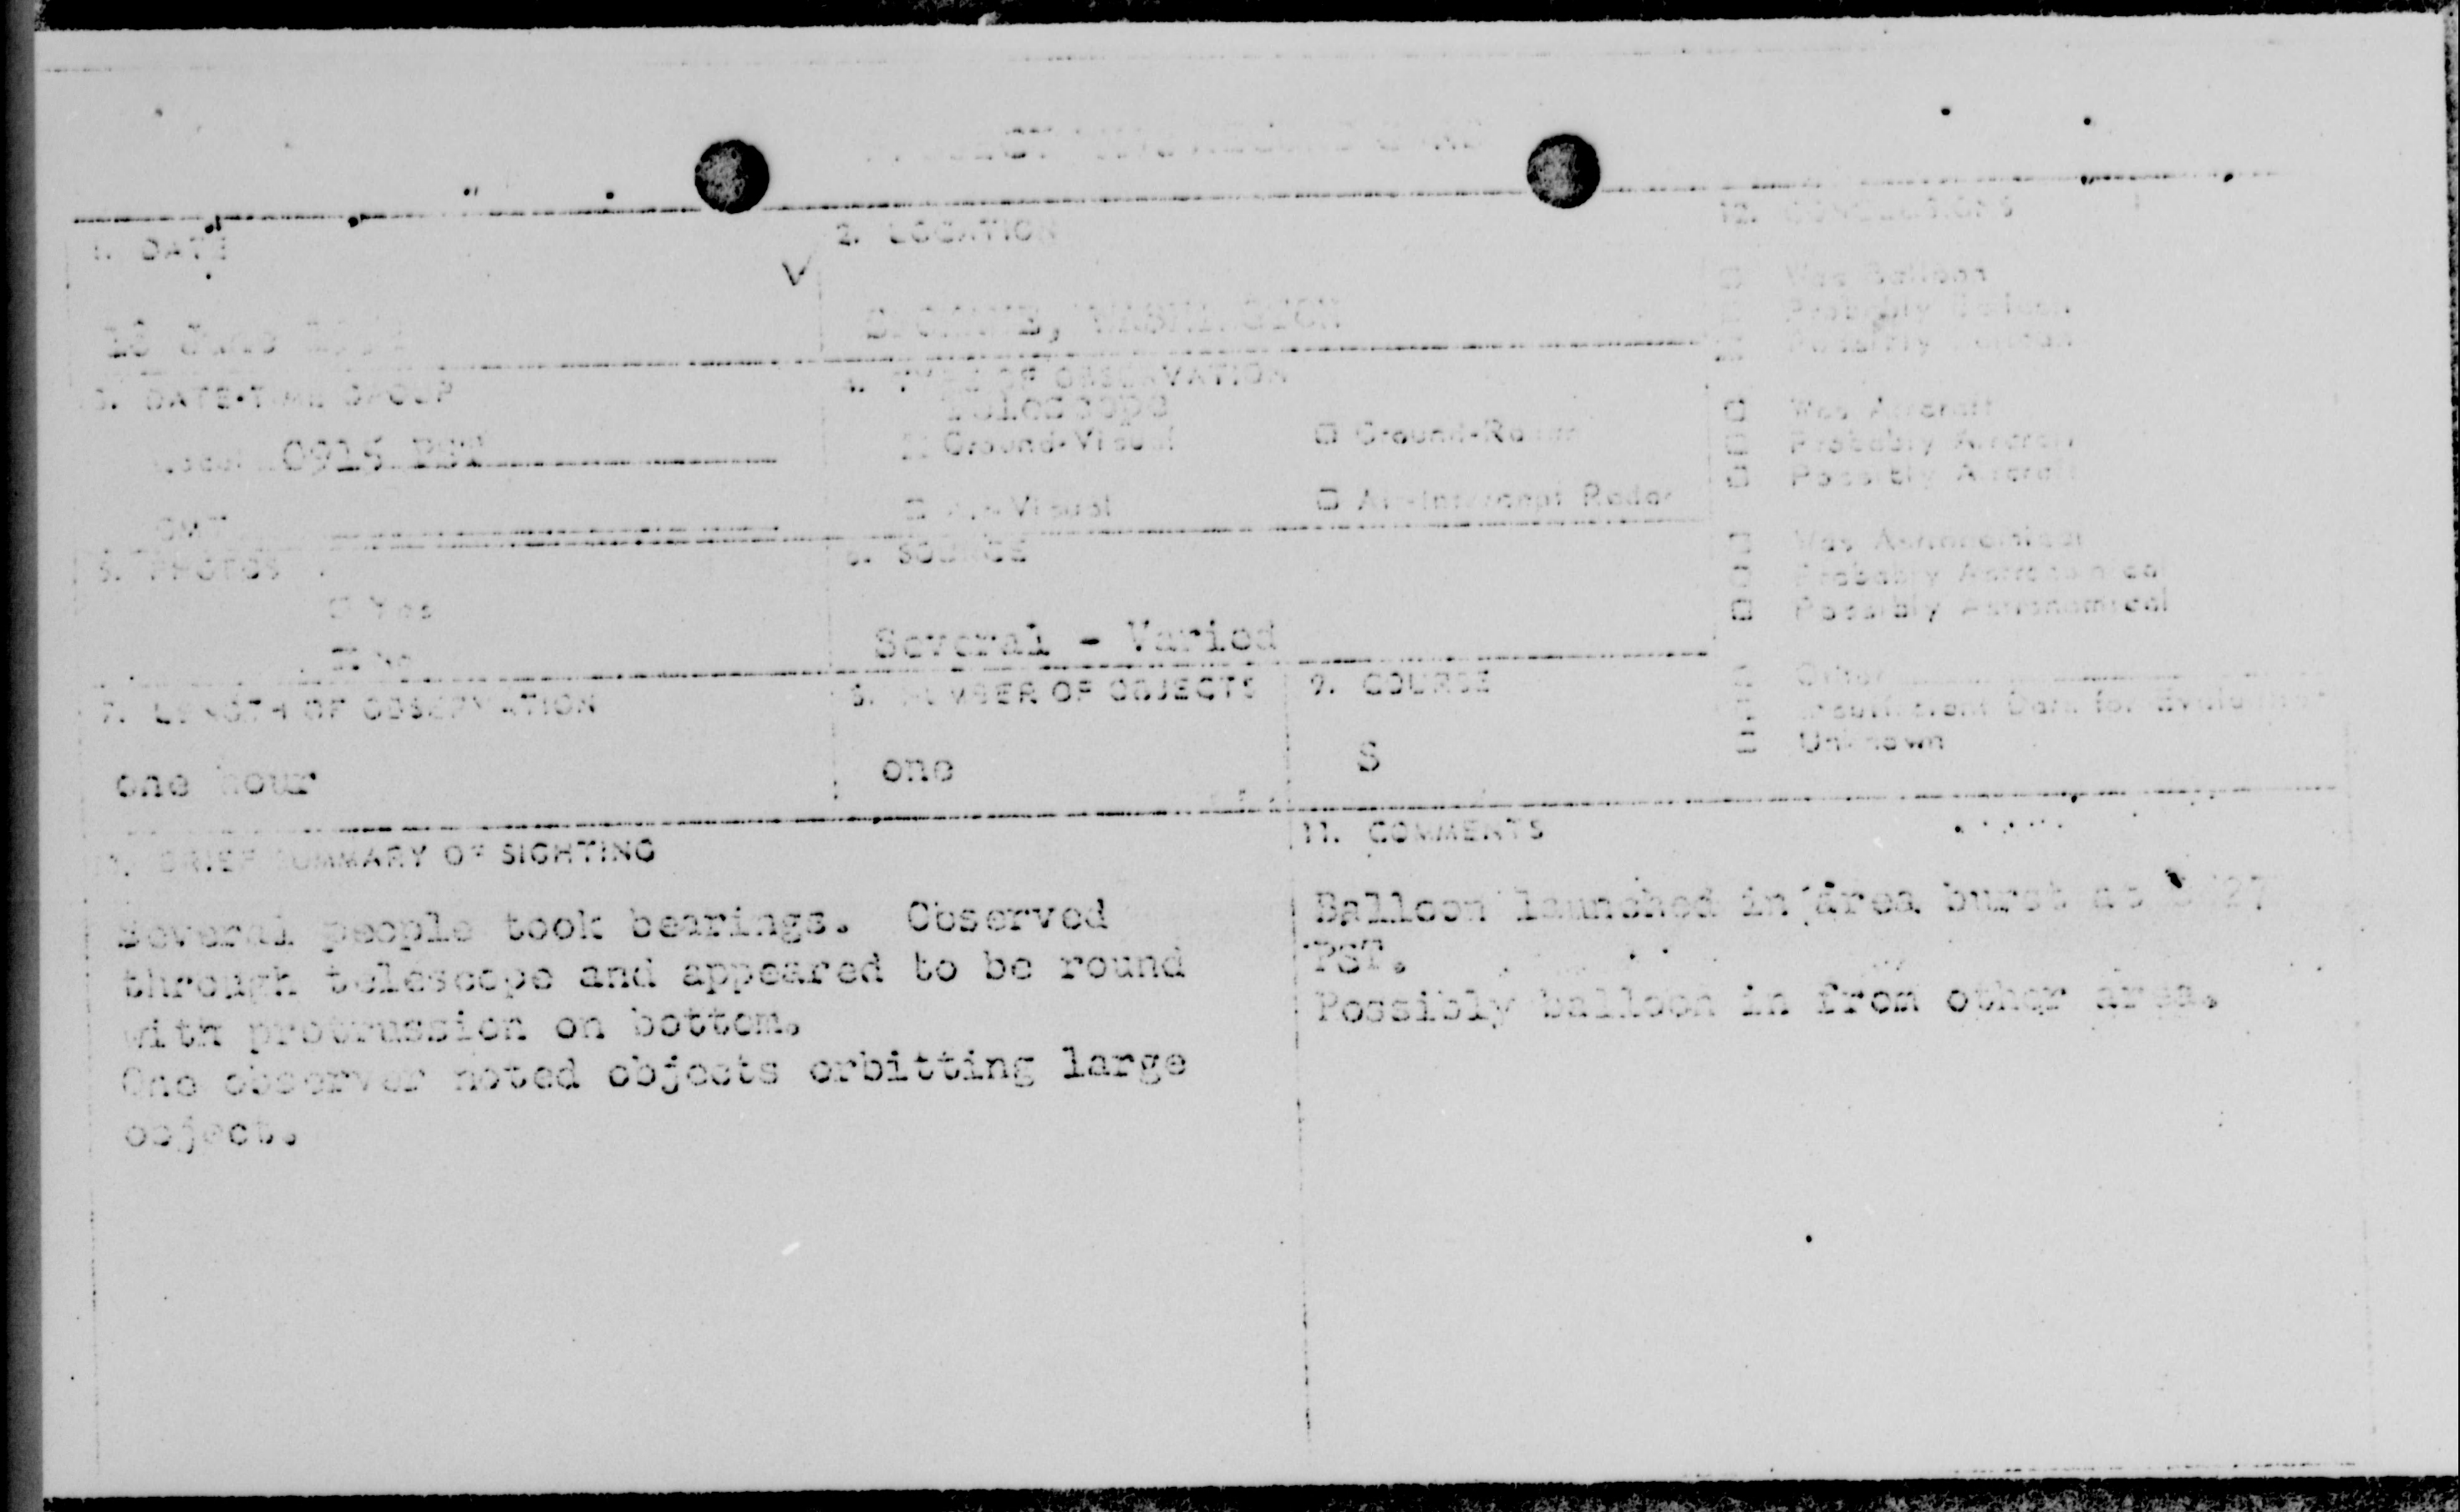 1. DATE
2. LOCATION
12. CONCLUSIONS
18 June
SPOKANE, WASHINGTON
Was Balloon
Probably Balloon
Possibly Balloon
3. DATE-TIME GROUP
4. TYPE OF OBSERVATION
Telescope
Local 0915 PST
Ground-Visual
Ground-Radar
Was Aircraft
Probably Aircraft
Possibly Aircraft
GMT
Air-Visual
Air-Intercept Radar
5. PHOTOS
6. SOURCE
Was Astronomical
Probably Astronomical
Possibly Astronomical
Yes
No
Several - Varied
7. LENGTH OF OBSERVATION
8. NUMBER OF OBJECTS
9. COURSE
Other
Insufficient Data for Evaluation
Unknown
one hour
one
S
BRIEF SUMMARY OF SIGHTING
11. COMMENTS
Several people took bearings. Observed
through telescope and appeared to be round
with protrussion on bottom.
One observer noted objects orbitting large
object.
Balloon launched in area burst at
PST.
Possibly balloon in from other area.